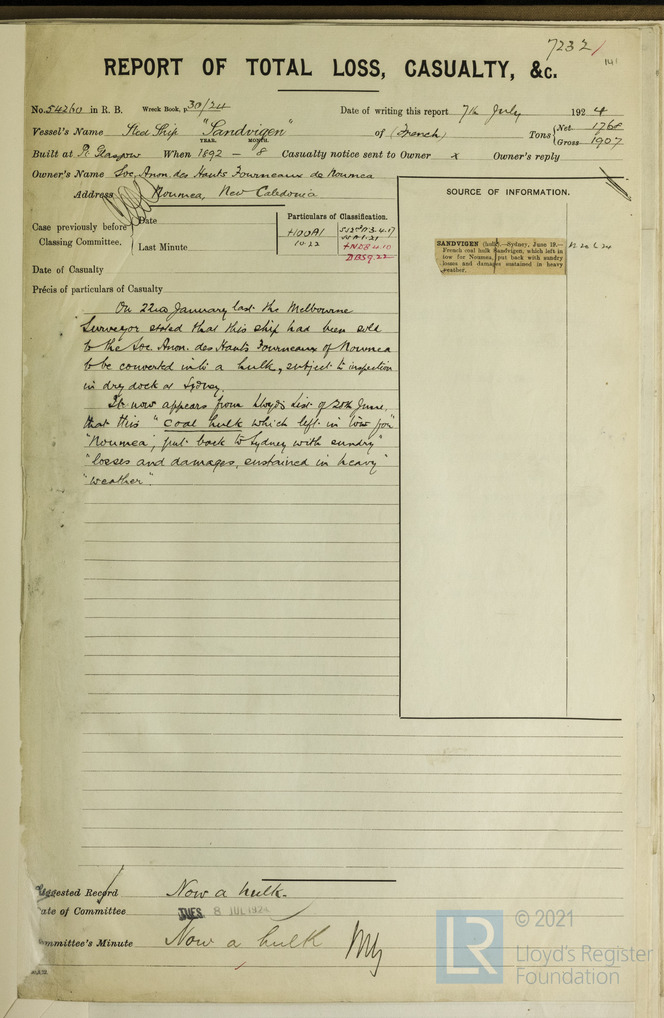 7232
141
REPORT OF TOTAL LOSS, CASUALTY, &c.
No. 54260 in R. B. Wreck Book, p. 30/24 Date of writing this report 7th July 1924
Vessel's Name Steel Ship "Sandvigen" of (French) Tons { Net 1768 Gross 1907
Built at P. Glasgow When YEAR. 1892 - MONTH. 8 Casualty notice sent to Owner x Owner's reply
Owner's Name Soc. Anon. des Hauts Fourneaux de Noumea
Address Noumea, New Caledonia
SOURCE OF INFORMATION.
Case previously before Classing Committee.
Date
Last Minute
Particulars of Classification.
+100A1
10.22
+NDB 4.10
DBS 9.22
SANDVIGEN (hulk).—Sydney, June 19.—
French coal hulk Sandvigen, which left in
tow for Noumea, put back with sundry
losses and damages sustained in heavy
weather.
Date of Casualty
Précis of particulars of Casualty
On 22nd January last the Melbourne
Surveyor stated that this ship had been sold
to the Soc. Anon. des Hauts Fourneaux of Noumea
to be converted into a hulk, subject to inspection
in dry dock at Sydney.
It now appears from Lloyd's List of 20th June,
that this "coal hulk which left in tow for"
"Noumea, put back to Sydney with sundry"
"losses and damages, sustained in heavy"
"weather".
Suggested Record Now a hulk.
Date of Committee TUES 8 JUL 1924
Committee's Minute Now a hulk
© 2021
LR
Lloyd's Register
Foundation